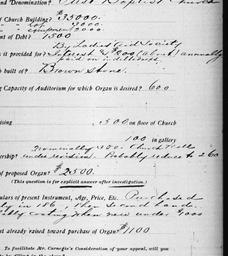 and Denomination? First Baptist
of Church Building? $35000.
" " 3000.
" equipment 2000.
nt of Debt? 1500
By Ladies Aid Society
is provided for? Interest $200 (about) annually
paid on indebtness.
h built of? Brown Stone.
ng Capacity of Auditorium for which Organ is desired? 600
ising 500 on floor of Church
100 in gallery
Nominally 300. Church Rolls
ership? under revision. Probably reduce to 260
of proposed Organ? $2500.
(This question is for explicit answer after investigation.)
culars of present Instrument, Age, Price, Etc. Purchased
in 186 , Then Second hand.
costing when new under $1000
nt already raised toward purchase of Organ? $1100
To facilitate Mr. Carnegie's Consideration of your appeal, will you